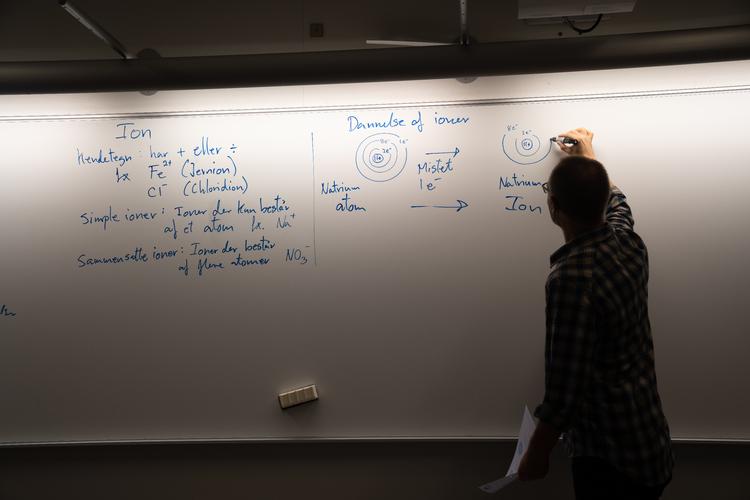 Ion
Kendetegn: har + eller ÷
fx Fe²⁺ (Jernion)
Cl⁻ (Chloridion)
Simple ioner: Ioner der kun består
af et atom fx. Na⁺
Sammensatte ioner: Ioner der består
af flere atomer NO₃⁻
Dannelse af ioner
8e⁻ 1e⁻
2e⁻
Mistet
1e⁻
Natrium
atom
8e⁻ 2e⁻
Natrium
Ion